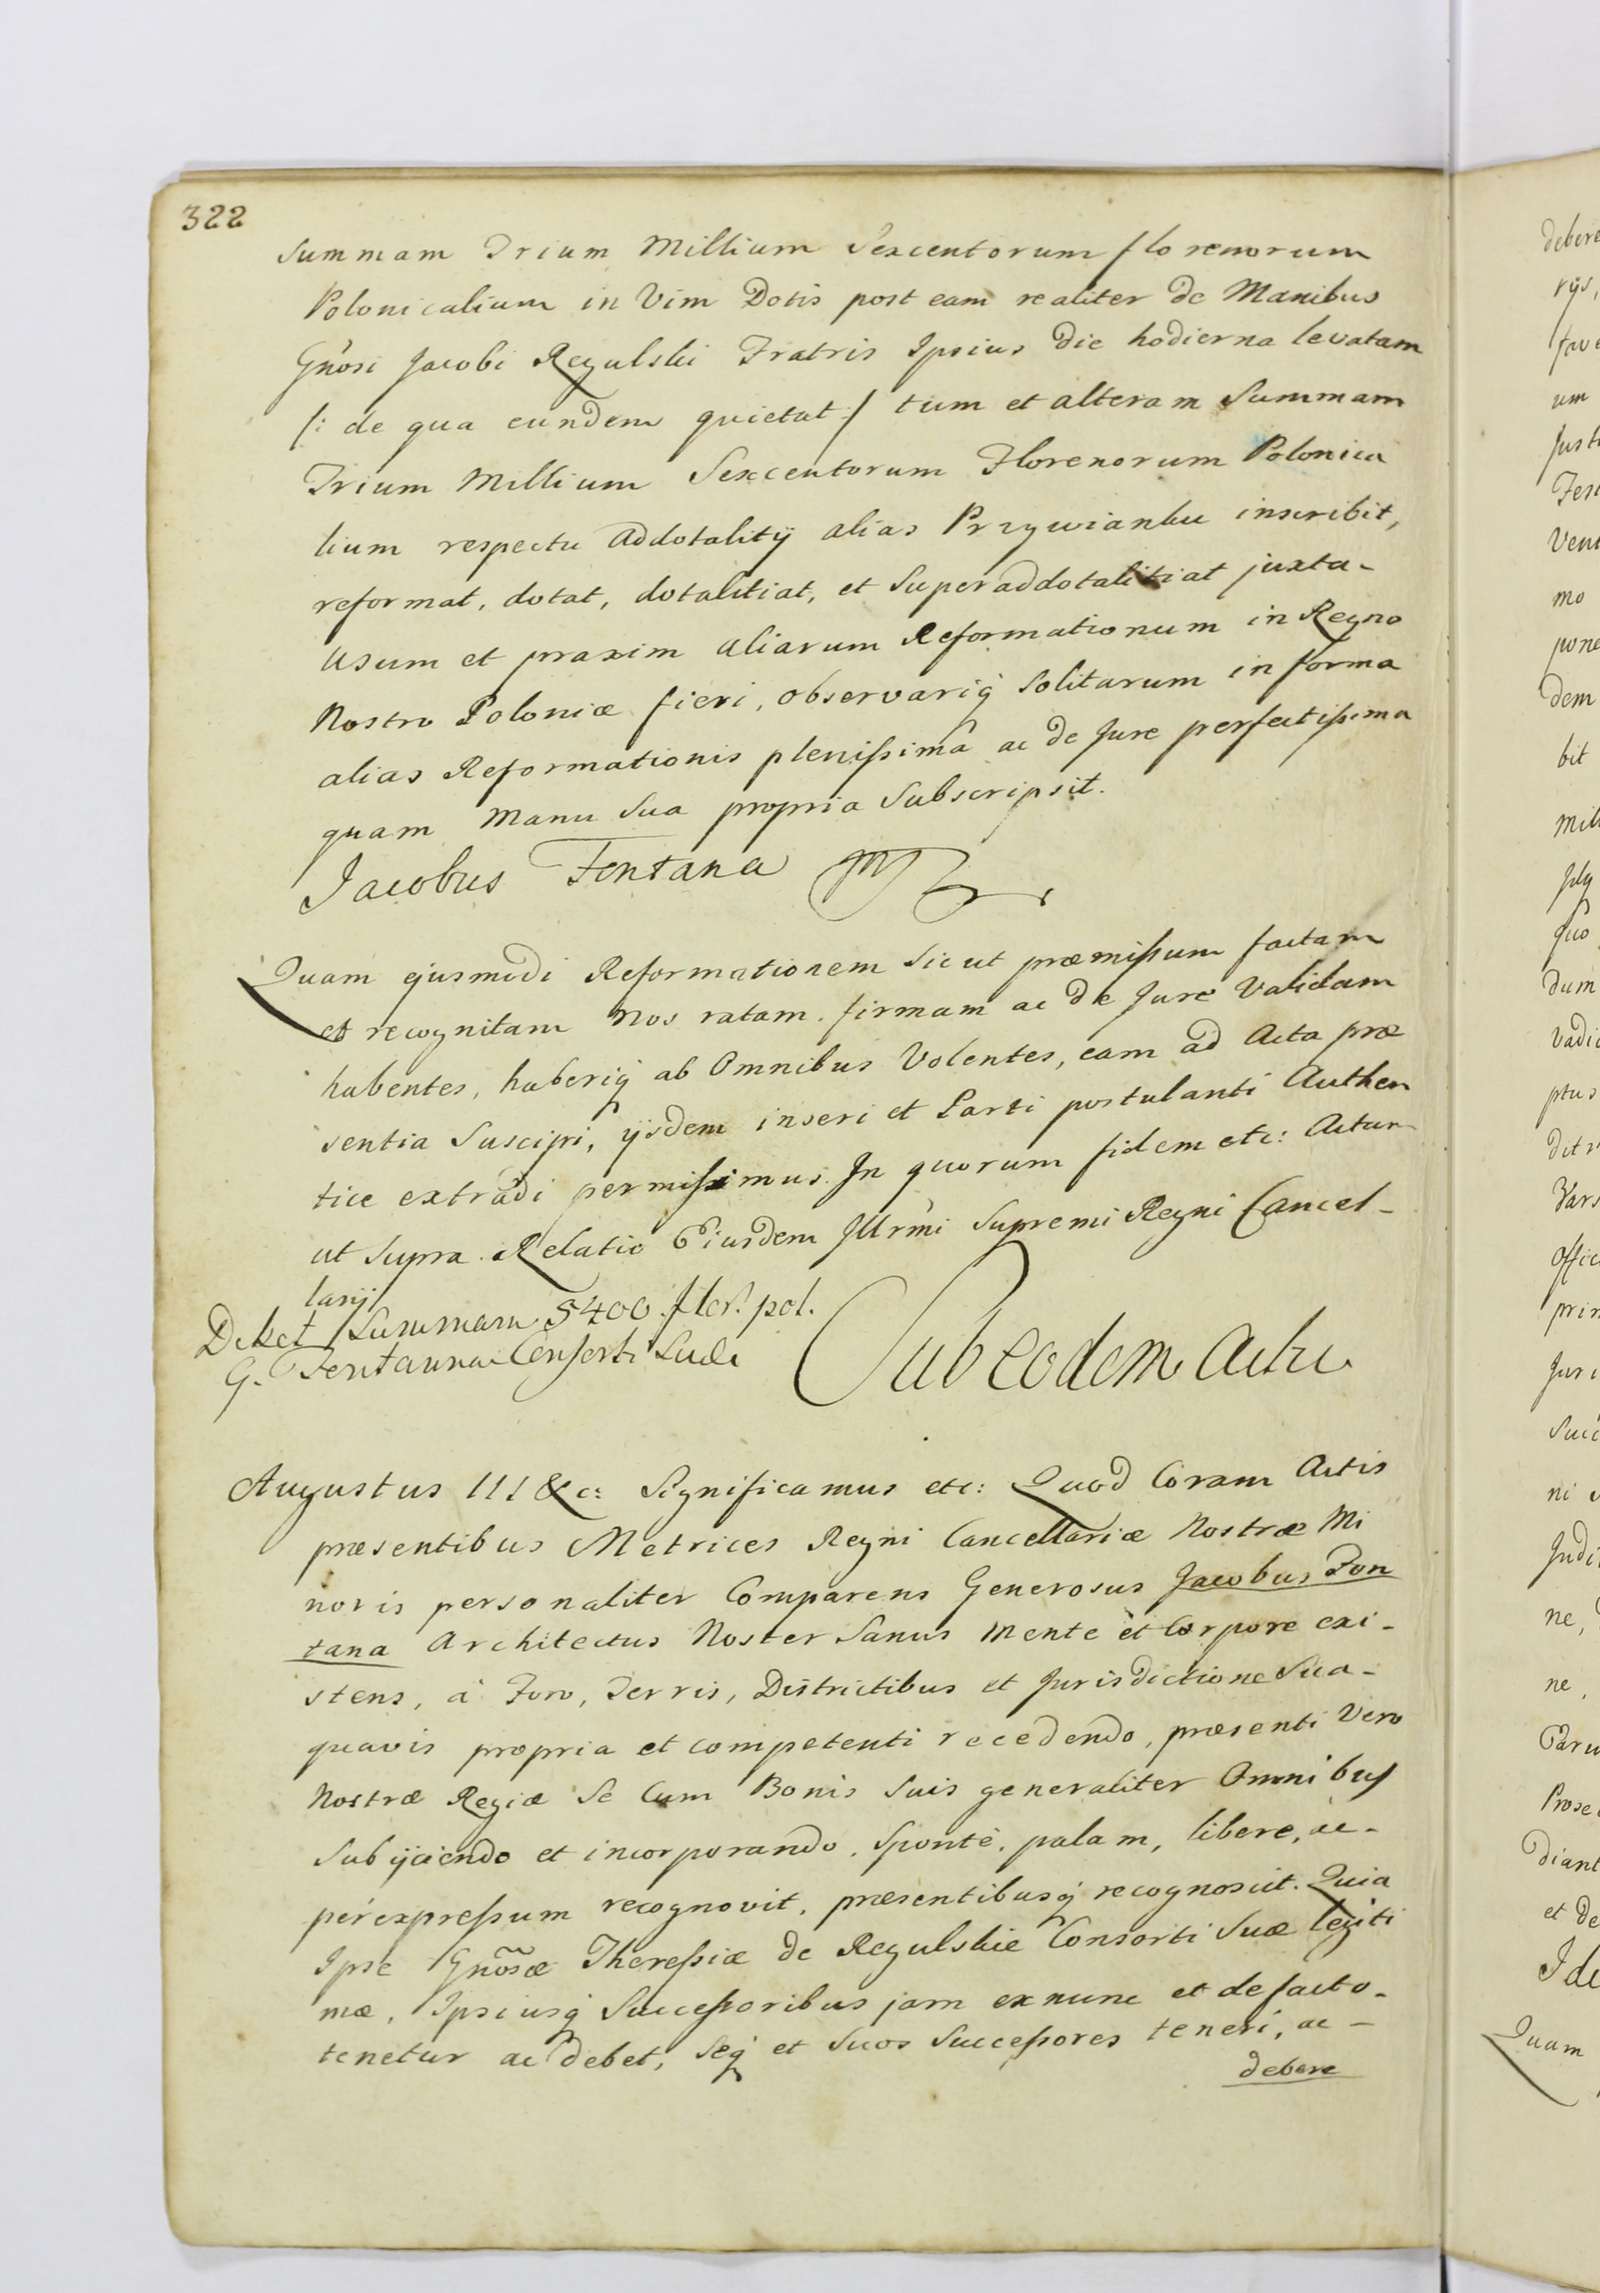 322
summam Trium Millium Sexcentorum florenorum
Polonicalium in Vim Dotis post eam realiter de Manibus
Gnosi Jacobi Regulski Fratris Ipsius die hodierna levatam
/: de qua eundem quietat :/ tum et alteram Summam
Trium Millium Sexcentorum Florenorum Polonica
lium respectu Addotalitij alias Przywianku inscribit,
reformat, dotat, dotalitiat, et Superaddotalitiat juxta-
usum et praxim aliarum Reformationum in Regno
Nostro Poloniæ fieri, observariq solitarum in forma
alias Reformationis plenissimâ ac de Jure perfectissima
quam Manu Sua propria Subscripsit.
Jacobus Fontana
Quam ejusmodi Reformationem sicut præmissum factam
et recognitam Nos ratam. firmam ac de Jure Validam
habentes, haberiq ab Omnibus Volentes, eam ad Acta præ
sentia Suscipi, ijsdem inseri et Parti postulanti Authen
tice extradi permissimus. In quorum fidem etc: Actum
ut supra. Relatio Eiusdem Illrmi Supremi Regni Cancel-
larij
Debet Summam 5400 flor. pol.
G. Fontanna Consorti Suæ
Sub eodem Actu
Augustus III &c: Significamus etc: Quod Coram Actis
præsentibus Metrices Regni Cancellariæ Nostræ Mi
noris personaliter Comparens Generosus Jacobus Fon
tana Architectus Noster Sanus mente et Corpore exi-
stens, à Foro, Terris, Districtibus et Jurisdictione Sua-
quavis propria et competenti recedendo, præsenti Vero
Nostræ Regiæ Se Cum Bonis Suis generaliter Omnibus
Subijciendo et incorporando. Spontè, palam, libere, ac-
pérexpressum recognovit, præsentibusq recognoscit. Quia
Ipse Gnosæ Theressiæ de Regulskie Consorti Suæ legiti
mæ, Ipsiusq Successoribus jam exnunc et defacto-
tenetur ac debet, Seq et Suos Successores teneri, ac-
debere
debere
rijs,
um
mo
pone
dem
bit
Mill
quo
dum
Vadi
ptus
Vars
Offic
prin
Juri
Succ
ni
Judi
ne,
ne,
Prose
diant
et de
Quam